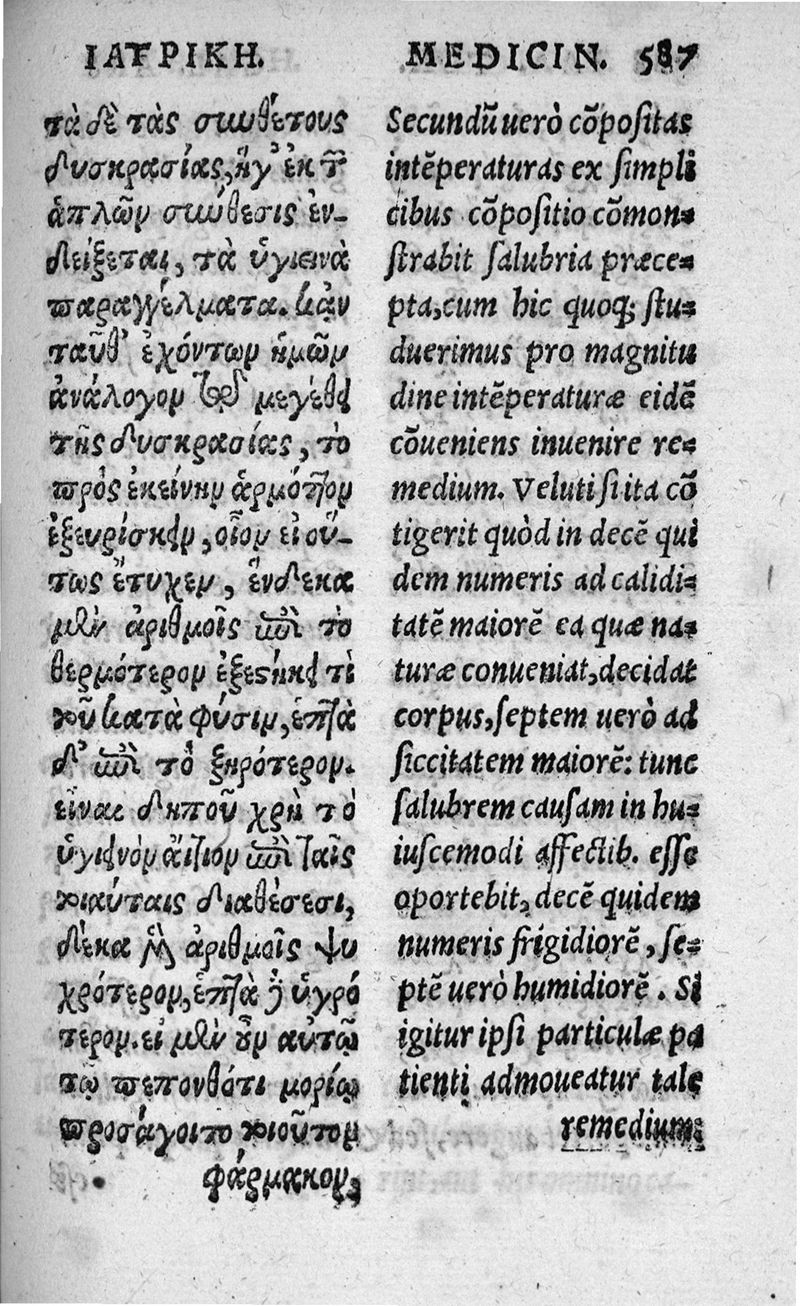 ΙΑΤΡΙΚΗ.
τὰ δὲ τὰς συνθέτους
δυσκρασίας, ἥγ' ἐκ τῶν
ἁπλῶν σύνθεσις ἐν-
δείξεται, τὰ ὑγιεινὰ
παραγγέλματα. κἀν
ταῦθ' ἐχόντων ἡμῶν
ἀνάλογον τῷ μεγέθει
τῆς δυσκρασίας, τὸ
πρὸς ἐκείνην ἁρμόττον
ἐξευρίσκειν, οἷον εἰ οὕ-
τως ἔτυχεν, ἕνδεκα
μὲν ἀριθμοῖς ἐπὶ τὸ
θερμότερον ἐξεστήκει τὶ
τοῦ κατὰ φύσιν, ἑπτὰ
δ' ἐπὶ τὸ ξηρότερον.
εἶναι δήπου χρὴ τὸ
ὑγιεινὸν αἴτιον ἐπὶ ταῖς
τοιαύταις διαθέσεσι,
δέκα μὲν ἀριθμοῖς ψυ
χρότερον, ἑπτὰ δὲ ὑγρό
τερον. εἰ μὲν οὖν αὐτῷ
τῷ πεπονθότι μορίῳ
προσάγοιτο τοιοῦτον
φάρμακον,
MEDICIN. 587
Secundũ uerò cõpositas
intẽperaturas ex simpli
cibus cõpositio cõmon-
strabit salubria præce-
pta, cum hic quoq; stu-
duerimus pro magnitu
dine intẽperaturæ eidẽ
cõueniens inuenire re-
medium. Veluti si ita cõ
tigerit quòd in decẽ qui
dem numeris ad calidi-
tatẽ maiorẽ ea quæ na-
turæ conueniat, decidat
corpus, septem uerò ad
siccitatem maiorẽ: tunc
salubrem causam in hu-
iuscemodi affectib. esse
oportebit, decẽ quidem
numeris frigidiorẽ, se-
ptẽ uerò humidiorẽ. Si
igitur ipsi particulæ pa
tienti admoueatur tale
remedium: